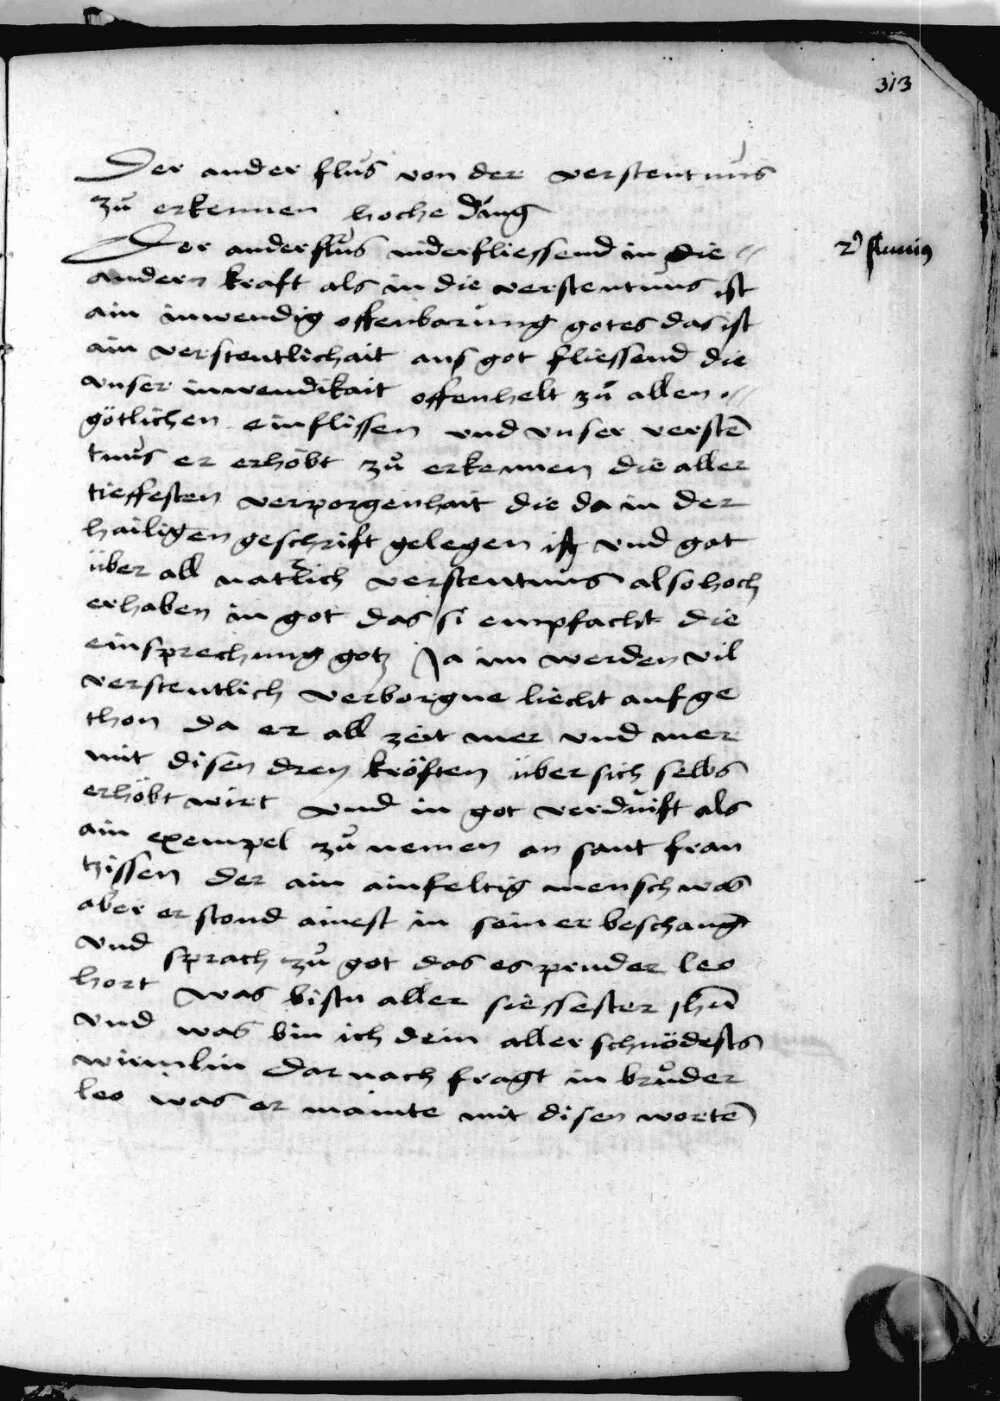 313
Der ander flus von der verstentnus
zů erkennen hoche ding
Der ander flus niderfliessend in die
2us fluuius
andern kraft als in die verstentnus ist
ain inwendig offenbarung gotes das ist
ain verstentlichait aus got fliessend die
vnser inwendikait offenhelt zů allen
götlichen einflissen vnd vnser versten̄
tnus er erhöbt zů erkennen die aller
tieffesten verporgenhait die da in der
hailigen geschrift gelegen ist vnd got
über all natɿlich verstentnus also hoch
erhaben in got das si empfacht die
einsprechung gotz Ja im werden vil
verstentlich verborgne liecht auf ge
thon da er all zeit mer vnd mer
mit disen dren kröften über sich selbs
erhöbt wirt vnd in got verduift als
ain exempel zů nemen an sant fran
tzissen der ain ainfeltig mensch was
aber er stond ainest in seiner beschaung
vnd sprach zů got das es pruder leo
hort was bistu aller siessester jhū
vnd was bin ich dein aller schnödests
wirmlin dar nach fragt in brůder
leo was er mainte mit disen wortē